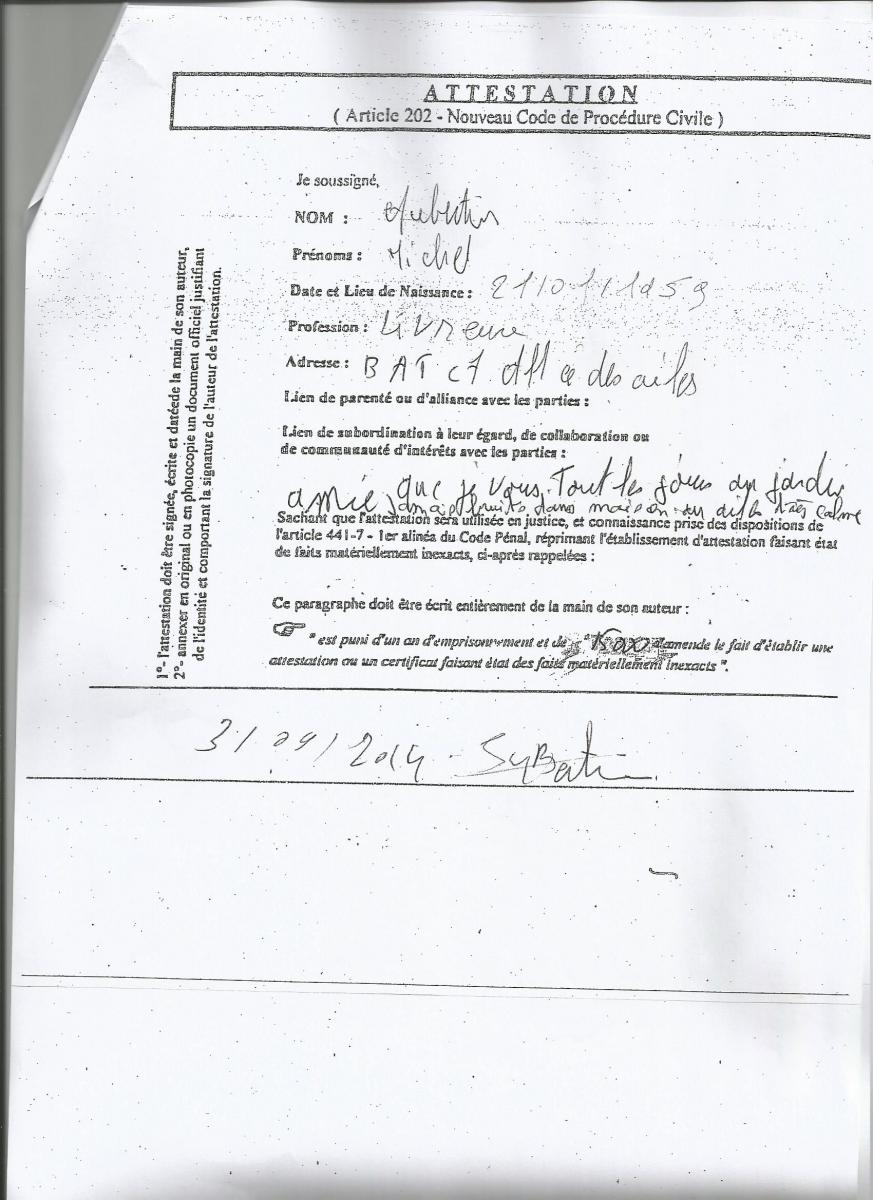 ATTESTATION
( Article 202 - Nouveau Code de Procédure Civile )
Je soussigné,
NOM : Aubertin
Prénoms : Michel
Date et Lieu de Naissance : 21/01/1959
Profession : Livreur
Adresse : BAT C7 des
Lien de parenté ou d'alliance avec les parties :
Lien de subordination à leur égard, de collaboration ou
de communauté d'intérêts avec les parties :
amie, que je vous Tout les jours au jardin
dans maison très calme
Sachant que l'attestation sera utilisée en justice, et connaissance prise des dispositions de
l'article 441-7 - 1er alinéa du Code Pénal, réprimant l'établissement d'attestation faisant état
de faits matériellement inexacts, ci-après rappelées :
Ce paragraphe doit être écrit entièrement de la main de son auteur :
" est puni d'un an d'emprisonnement et de 15000 d'amende le fait d'établir une
attestation ou un certificat faisant état des faits matériellement inexacts ".
1°- l'attestation doit être signée, écrite et datéede la main de son auteur,
2°- annexer en original ou en photocopie un document officiel justifiant
de l'identité et comportant la signature de l'auteur de l'attestation.
31/09/2014